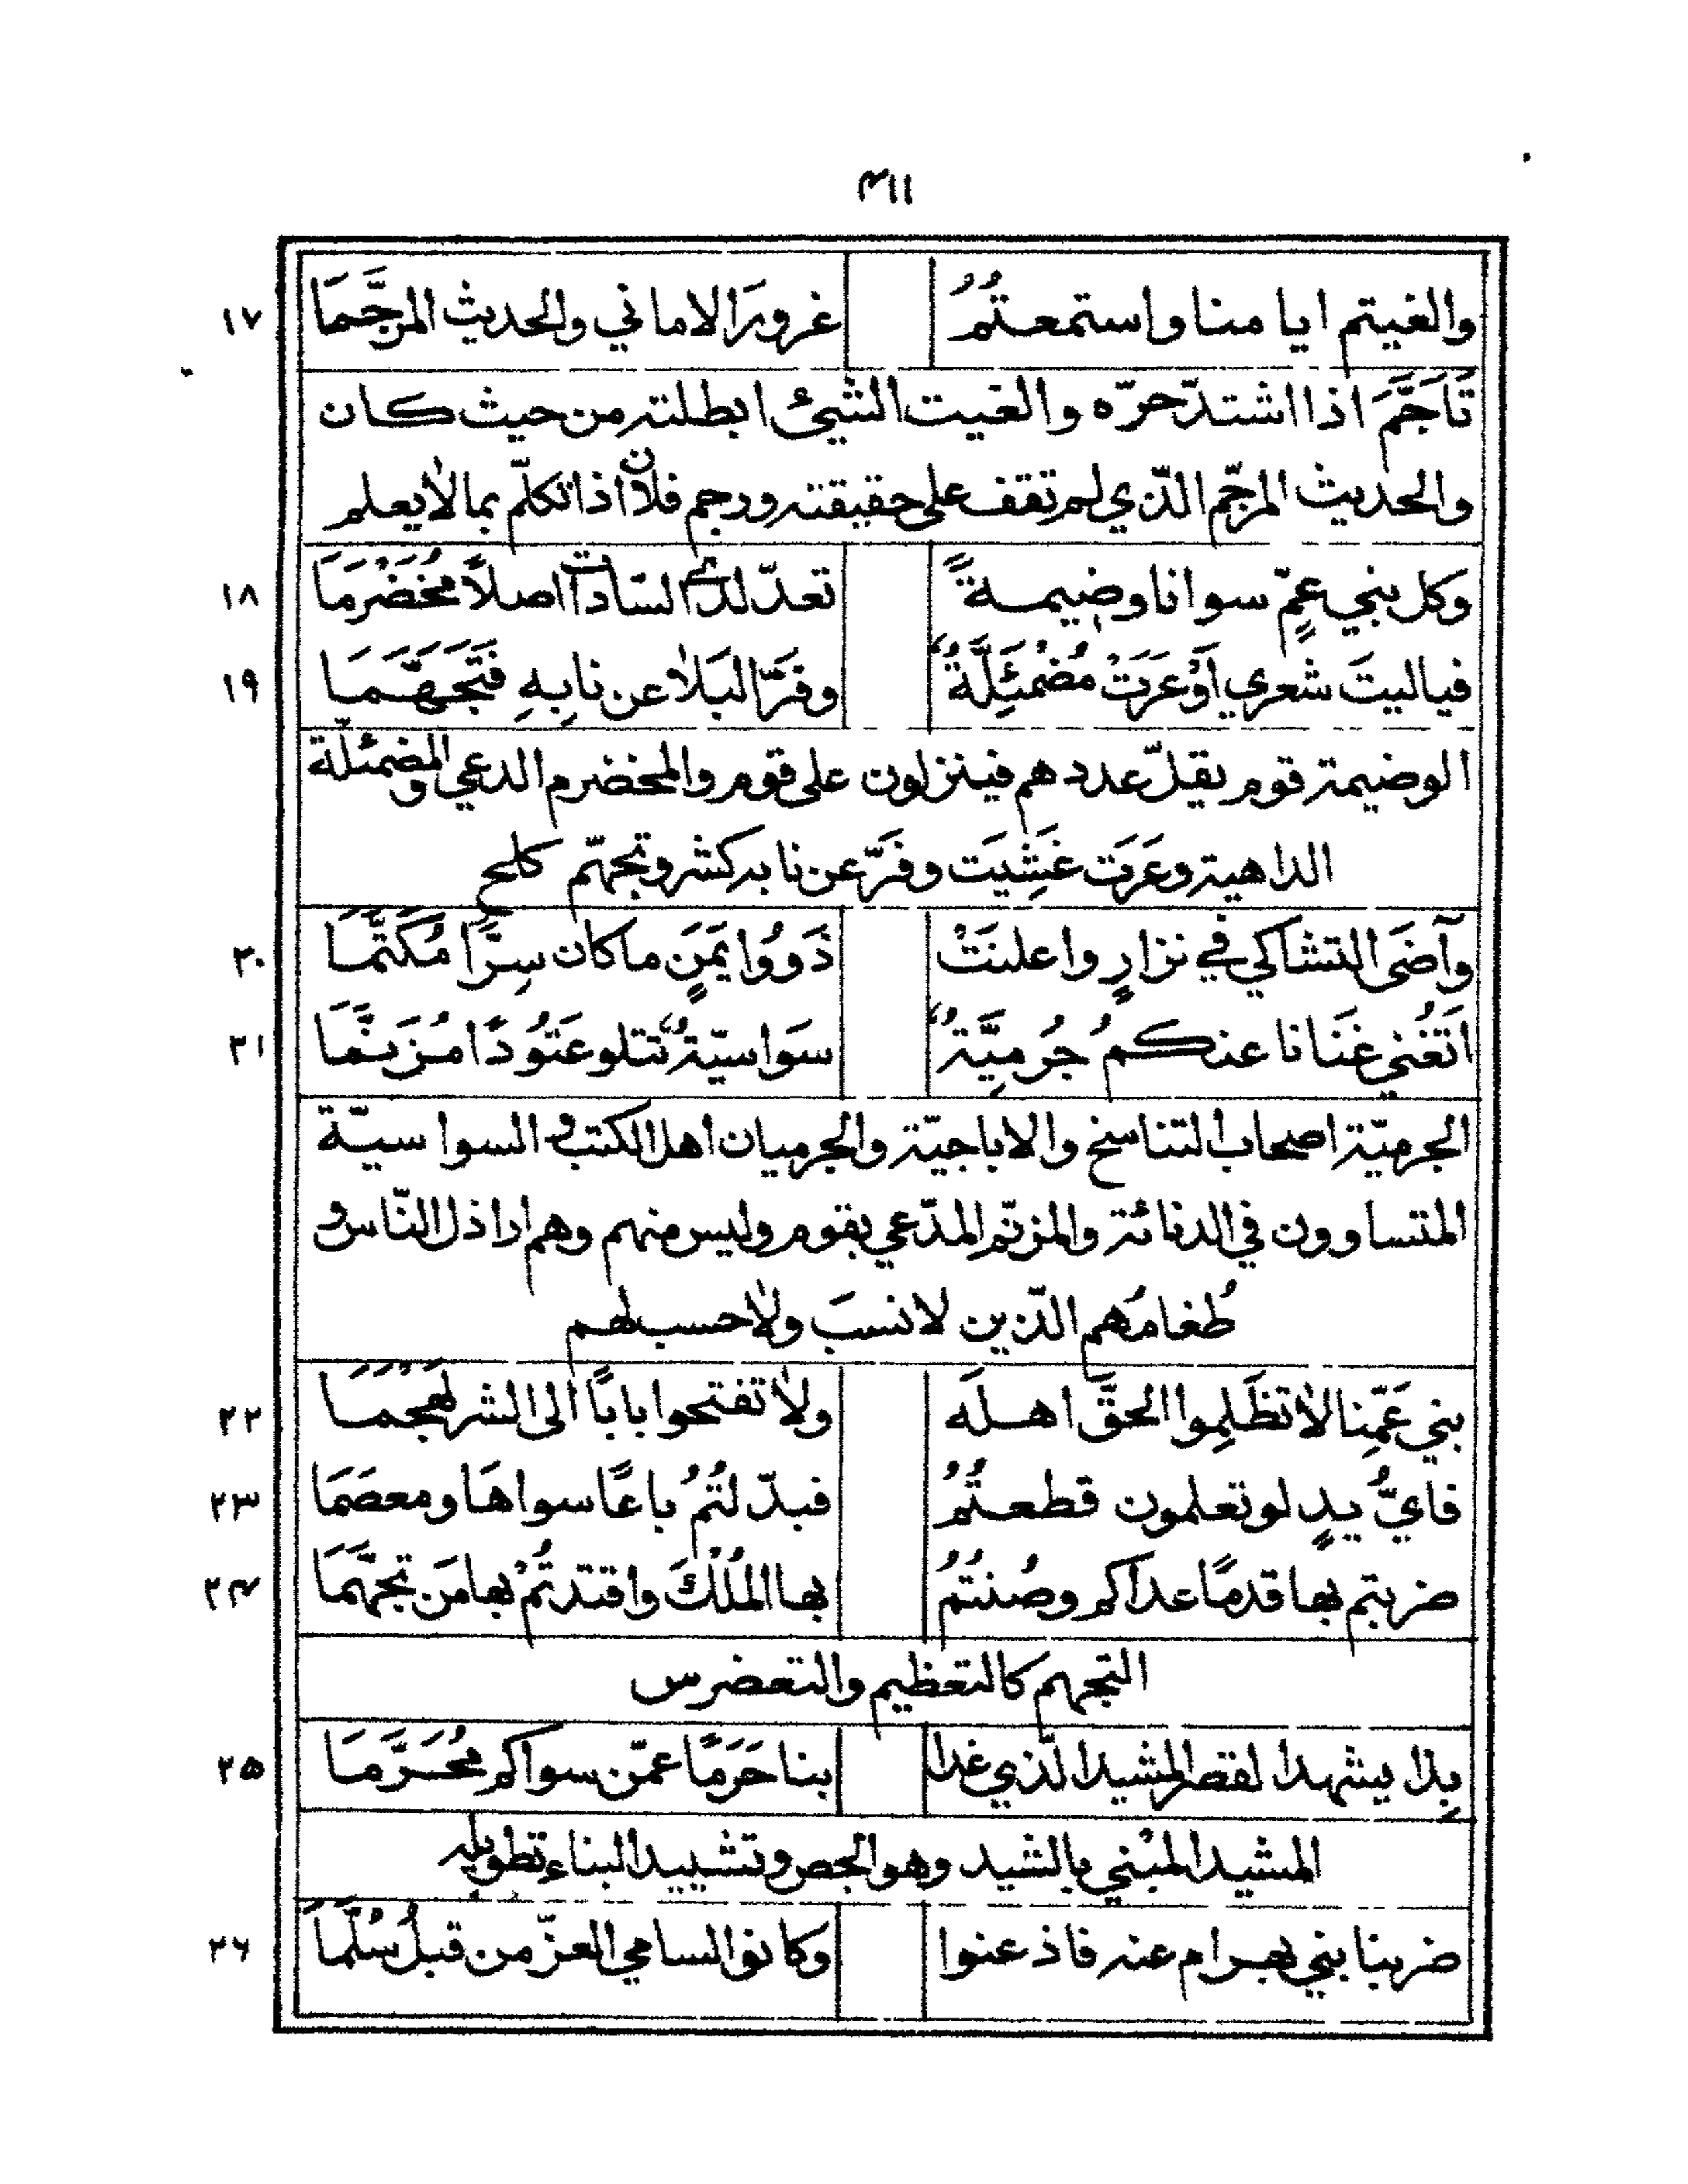 ۴۱۱
والغيتم ايا منا واستمعتُمُ غرورَ الاماني والحديث المرجَّمَا ١٧
تَاجَّمَ اذا اشتدّ حرّه والغيت الشيئ ابطلته من حيث كان
والحديث المرجّم الّذي لم تقف على حقيقته ورجم فلان اذا تكلّم بما لا يعلم
وكل بني عمٍّ سوانا وضيمةً تعدّ لدى السّادات اصلاً مُخَضْرَمَا ١٨
فياليتَ شعري اَوْ عَرَتْ مُضْمَئِلَّةٌ وفَرَّ البَلا عن نابِهِ فَتَجَهَّمَا ١٩
الوضيمة قوم يقلّ عددهم فينزلون على قوم والمخضرم الدعي والمضمئلّة
الداهية وعَرَت غَشِيَت وفَرَّ عن نابه كشر وتجهّم كلح
وآضَى التشاكي في نزارٍ واعلنَتْ ذَوُوا يَمَنٍ ماكان سِرًّا مُكَتَّمَا ٢٠
اَتُغْني غَنَانا عندكمُ جُرمِيَّةٌ سَواسيّةٌ تتلو عَتُودًا مُزَنَّمَا ٢١
الجرميّة اصحاب التناسخ والاباجيّة والجرميان اهل الكتب و السواسيّة
المتساوون في الدنائة والمزنّم المدّعي بقوم وليس منهم وهم اراذل النّاس و
طُغامُهم الّذين لا نسبَ ولا حسب لهم
بني عَمِّنا لا تظَلِموا الحقَّ اهلَه ولا تفتحوا بابًا الى الشر لَهْجَمَا ٢٢
فايُّ يدٍ لو تعلمون قطعتُمُ فبدّلتُمُ باعًا سواهَا ومعصَمَا ٢٣
ضربتم بها قدمًا عداكم وصُنتُمُ بها المُلْكَ واقتدتُمْ بها مَن تجهَّمَا ٢۴
التجهم كالتعظيم والتعضرس
بِذا يشهد القصر المشيد الّذي غدا بنا حَرَمًا عمّن سواكم مُحَرَّمَا ٢۵
المشيد المبْني بالشيد وهو الجص وتشييد البناء تطويله
ضربنا بني بهرام عنه فاذعنوا وكانوا لسامي العزّ من قبلُ سُلَّمَا ٢۶